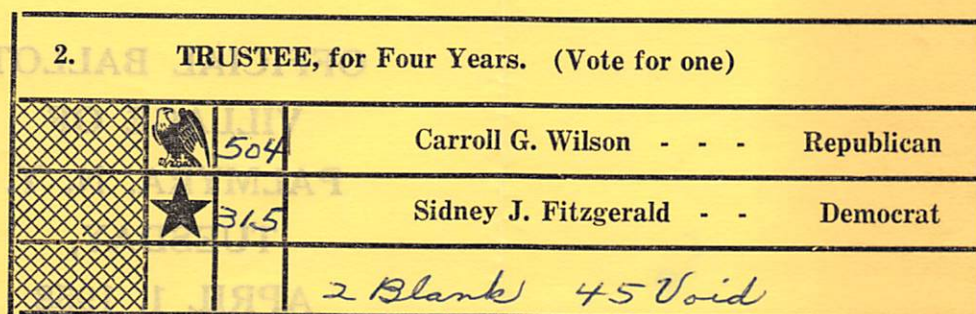 2. TRUSTEE, for Four Years. (Vote for one)
504 Carroll G. Wilson - - - Republican
315 Sidney J. Fitzgerald - - Democrat
2 Blank 45 Void